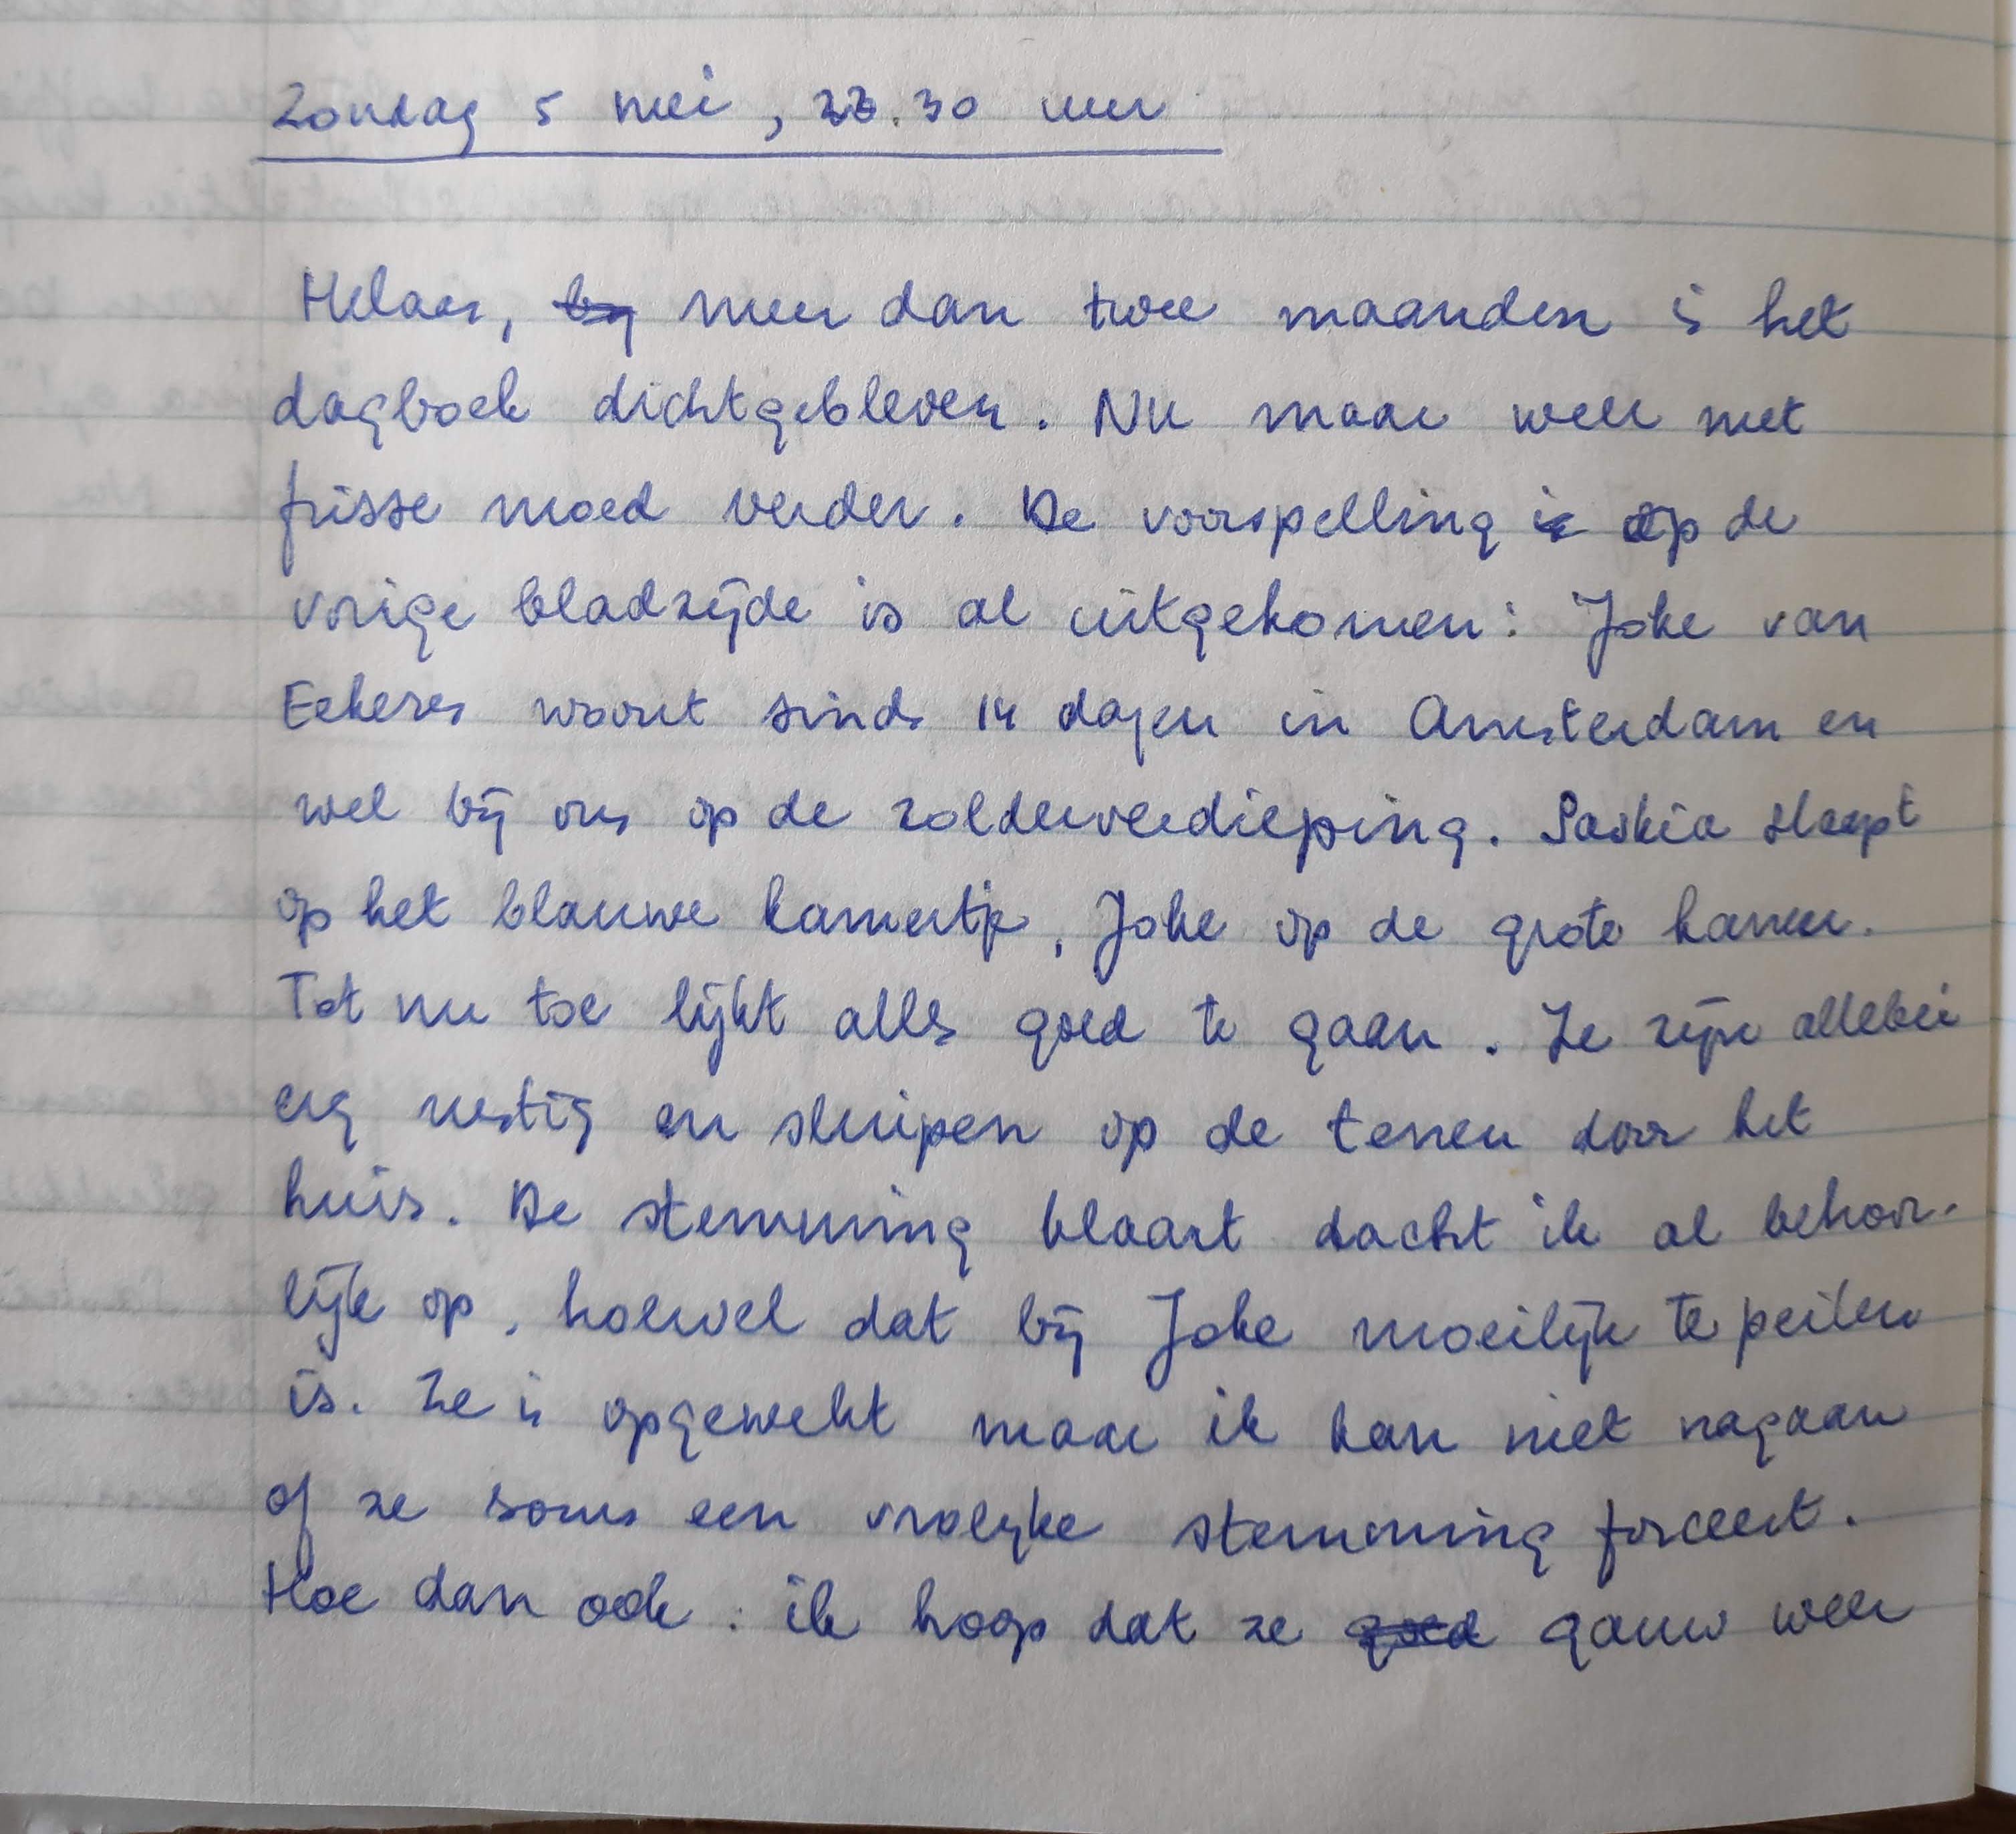 Zondag 5 mei, 23.30 uur
Helaas, meer dan twee maanden is het
dagboek dichtgebleven. Nu maar weer met
frisse moed verder. De voorspelling op de
vorige bladzijde is al uitgekomen: Joke van
woont sinds 14 dagen in Amsterdam en
wel bij ons op de zolderverdieping. Saskia slaapt
op het blauwe kamertje, Joke op de grote kamer.
Tot nu toe lijkt alles goed te gaan. Ze zijn allebei
erg rustig en sluipen op de tenen door het
huis. De stemming klaart dacht ik al behoor-
lijk op, hoewel dat bij Joke moeilijk te peilen
is. Ze is opgewekt maar ik kan niet nagaan
of ze soms een vrolijke stemming forceert.
Hoe dan ook: ik hoop dat ze gauw weer